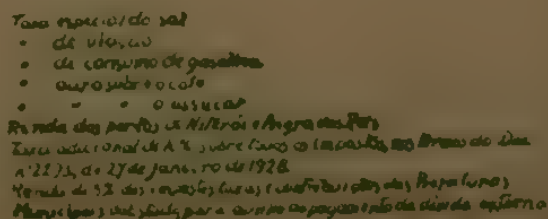 Taxa especial do sal
• de viação
• de consumo de gasolina
• ouro sobre o café
• " " o assucar
Renda dos portos de Niterói e Angra dos Reis
Taxa adicional de % sobre os impostos, nos termos do Dec
nº 2273, de 27 de janeiro de 1928
de 5% das contribuições das Prefeituras
Municipais para o pagamento da divida externa